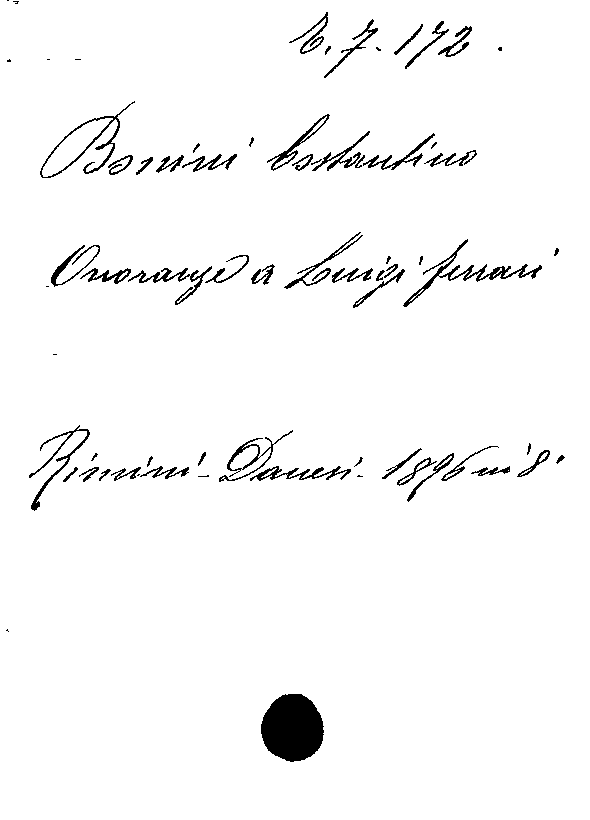 E. 7. 172.
Bonini Costantino
Onoranze a Luigi Ferrari
Rimini - Danesi - 1896 in 8°